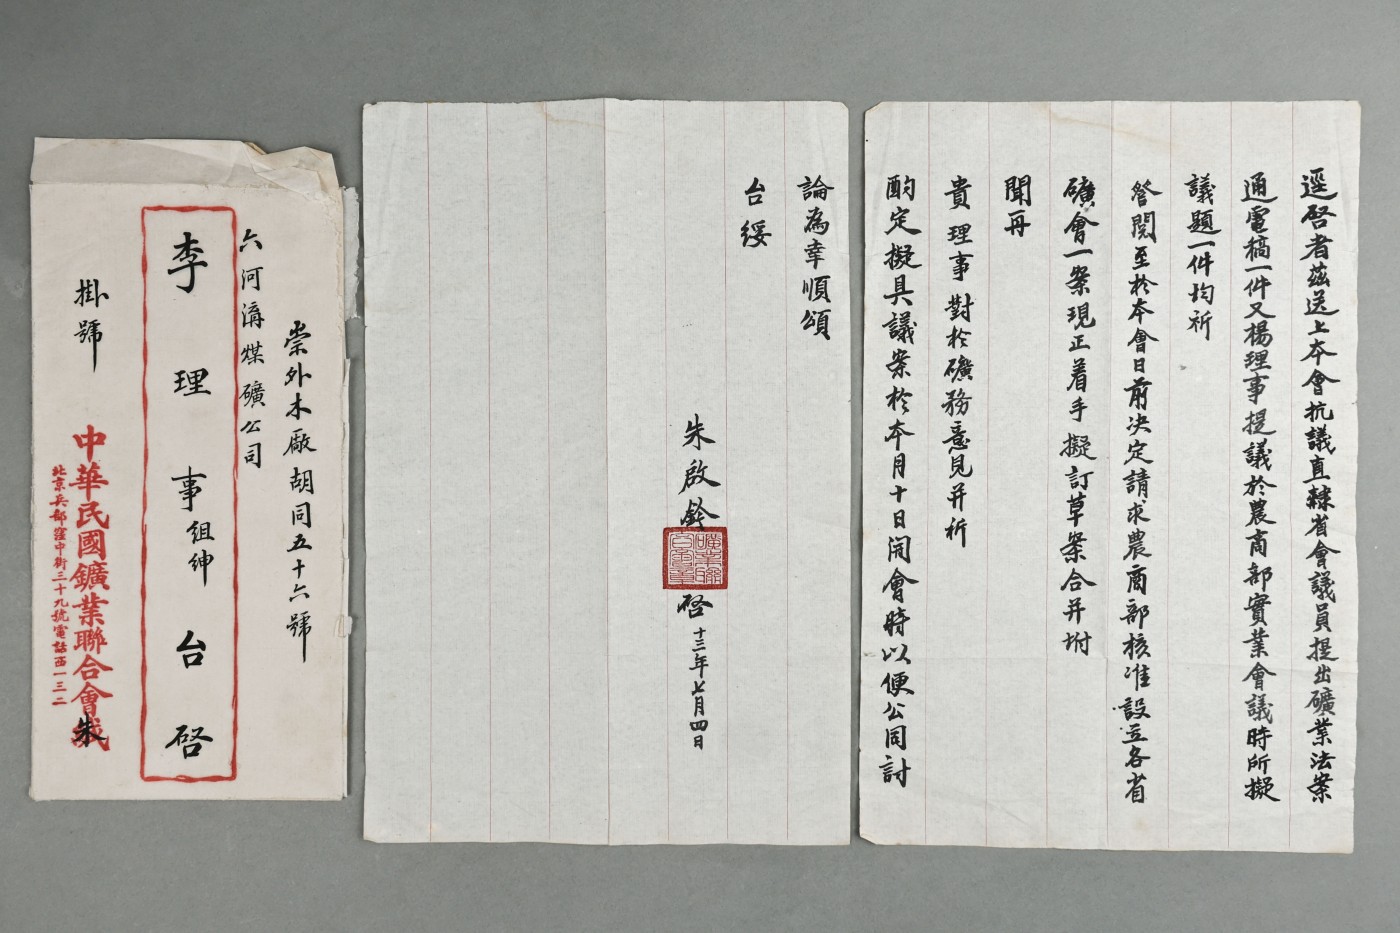 逕啓者茲送上本會抗議直隸省會議員提出礦業法案
通電稿一件又楊理事提議於農商部實業會議時所擬
議題一件均祈
詧閱至於本會日前決定請求農商部核准設立各省
礦會一案現正着手擬訂草案合并坿
聞再
貴理事對於礦務意見并祈
酌定擬具議案於本月十日開會時以便公同討
論為幸順頌
台綏
朱啟鈐
啓
十三年七月四日
崇外木廠胡同五十六號
六河溝煤礦公司
李理事組紳台啓
掛號
中華民國鑛業聯合會緘
朱
北京兵部窪中街三十九號電話西一三二